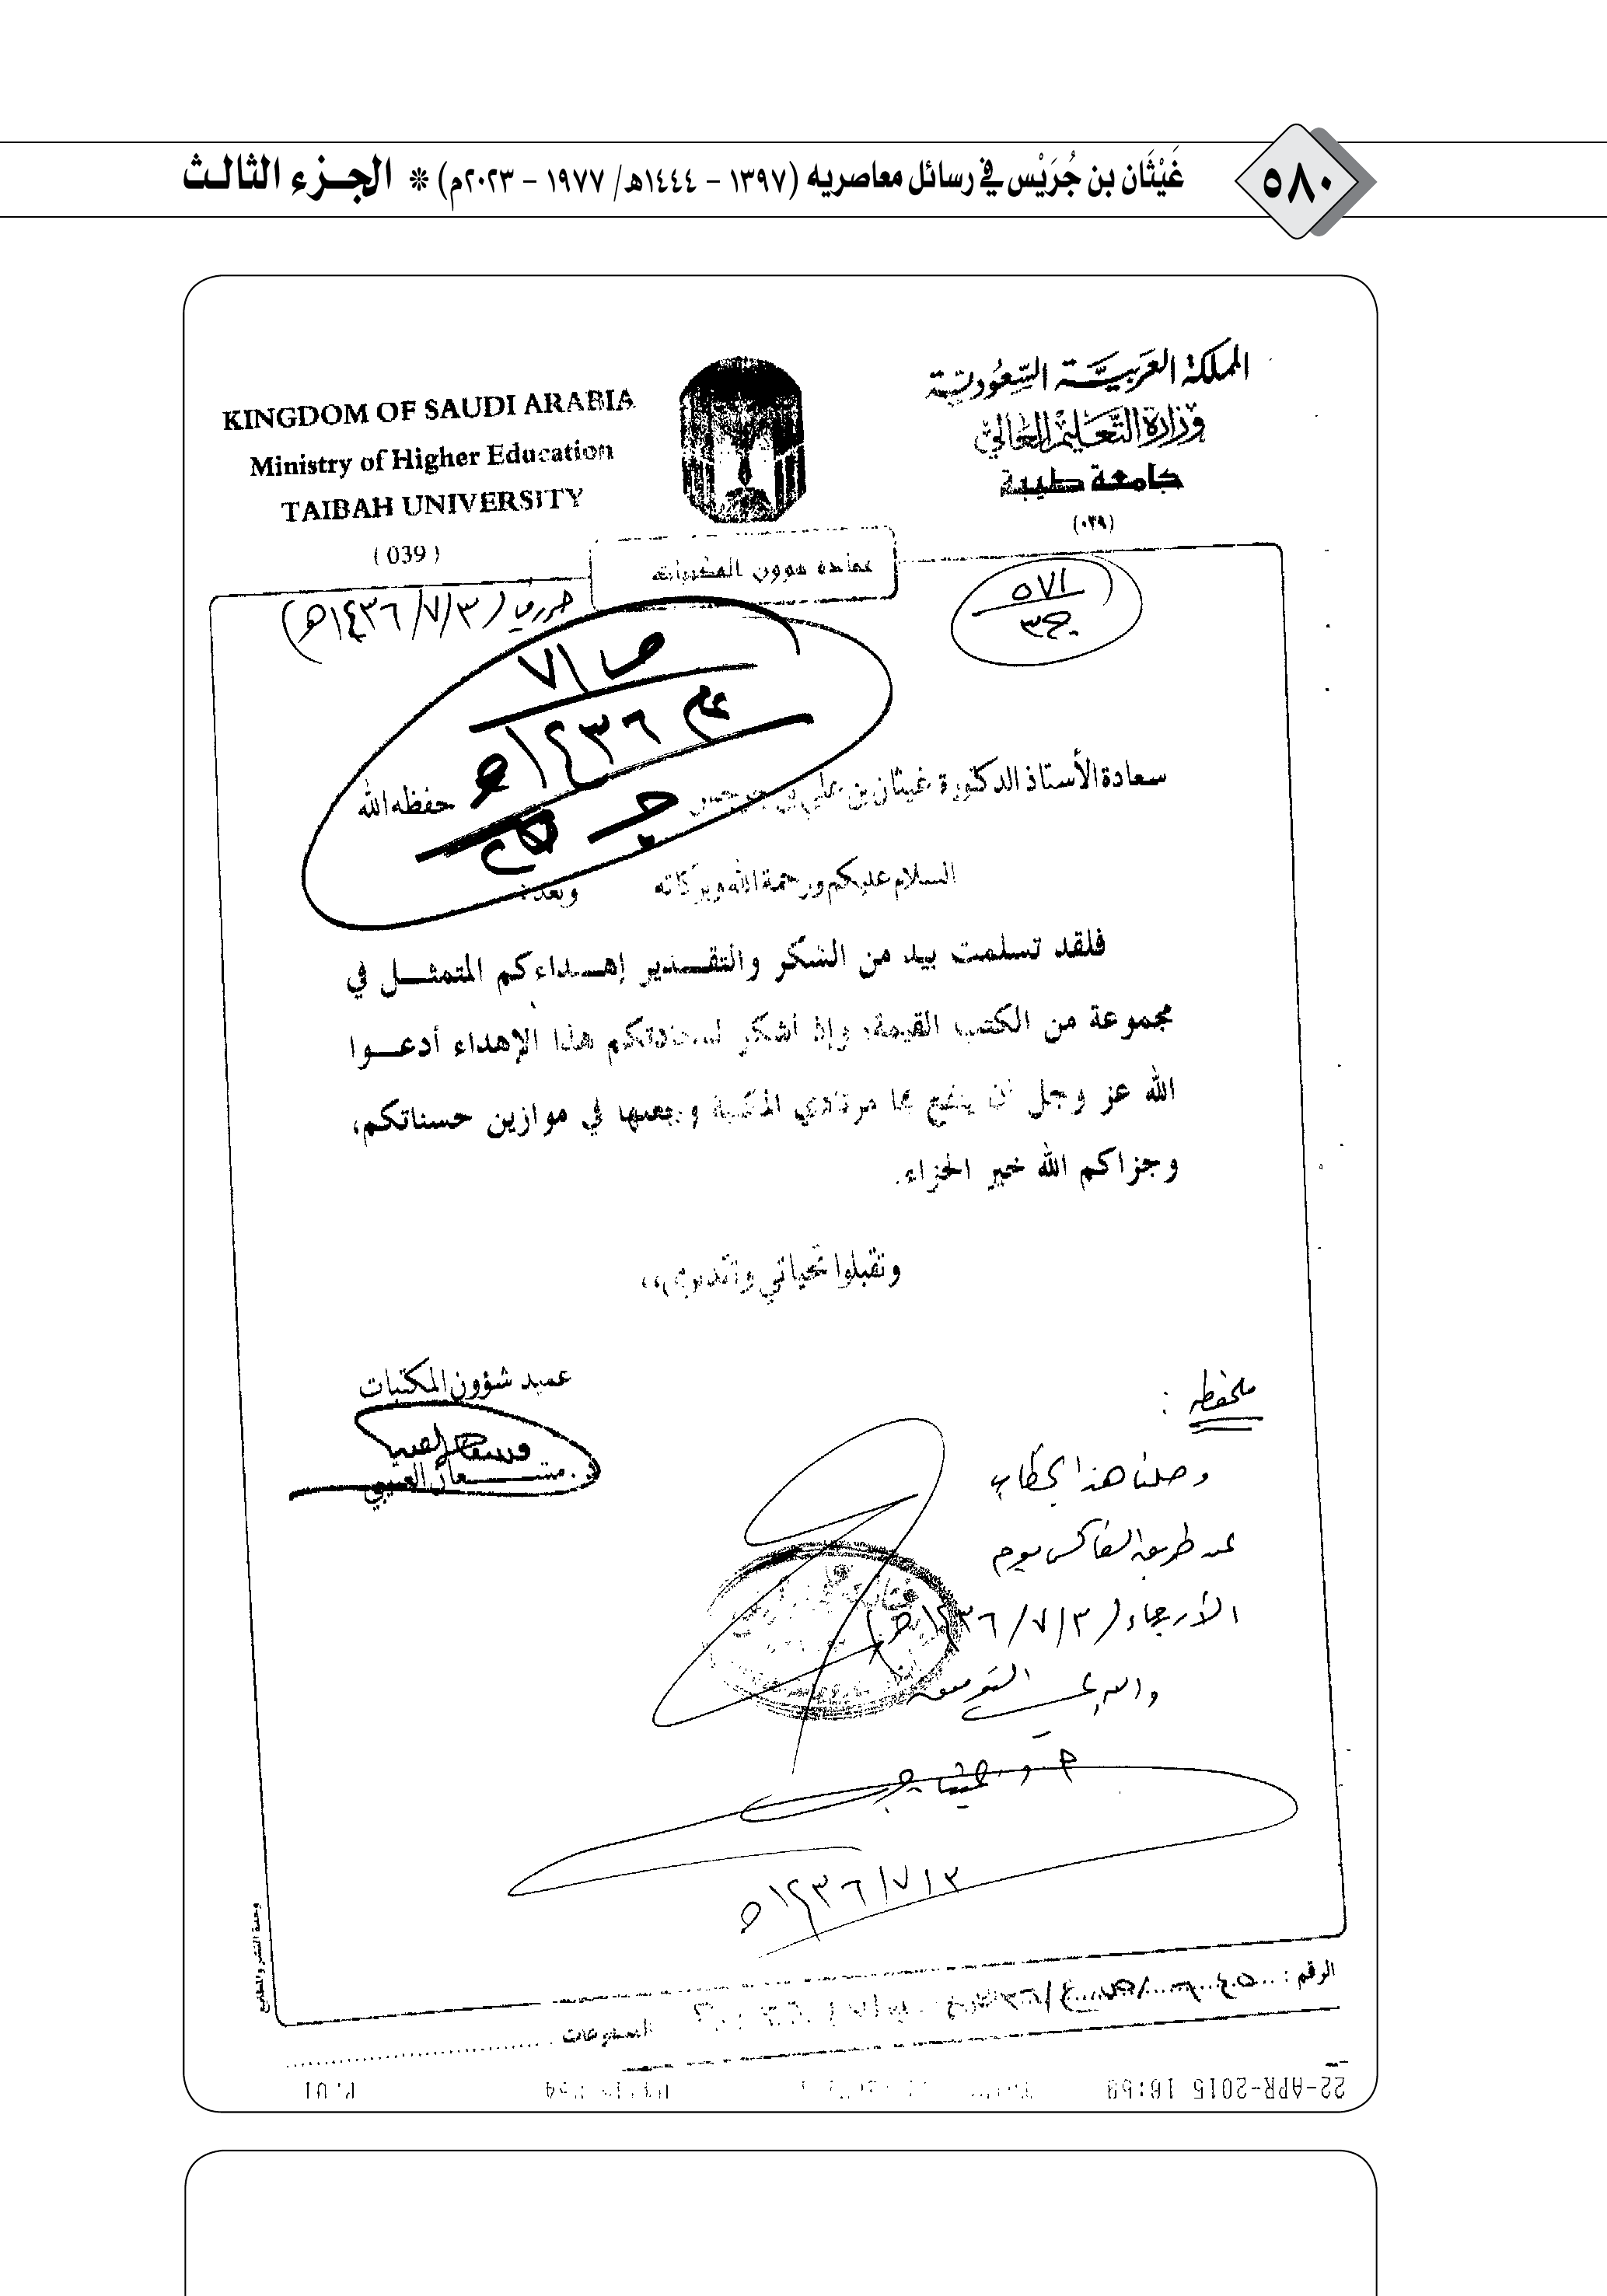 ٥٨٠
غَيْثَان بن جُرَيْس في رسائل معاصريه (١٣٩٧ - ١٤٤٤هـ/ ١٩٧٧ - ٢٠٢٣م) * الجزء الثالث
المملكة العربية السعودية
وزارة التعليم العالي
جامعة طيبة
(٠٣٩)
KINGDOM OF SAUDI ARABIA
Ministry of Higher Education
TAIBAH UNIVERSITY
( 039 )
عمادة شؤون المكتبات
٥٧١
ج٣
(١٤٣٦/٧/٣هـ)
ص٧١
عام ١٤٣٦هـ
سعادة الأستاذ الدكتورة غيثان بن علي بن جريس حفظه الله
السلام عليكم ورحمة الله وبركاته وبعد:
فلقد تسلمت بيد من الشكر والتقدير إهداءكم المتمثل في
مجموعة من الكتب القيمة، وإذ أشكر لسعادتكم هذا الإهداء أدعوا
الله عز وجل أن ينفع بها مرتادي المكتبة ويجعلها في موازين حسناتكم،
وجزاكم الله خير الجزاء.
وتقبلوا تحياتي وتقديري،،
عميد شؤون المكتبات
د. مشعان العتيبي
ملحفظه :
وصلنا هذا الخطاب
عن طريق الفاكس يوم
الأربعاء (١٤٣٦/٧/٣هـ)
والله ولي التوفيق
١٤٣٦/٧/٣هـ
وحدة النشر والمطابع
الرقم :
المشفوعات
22-APR-2015
P.01